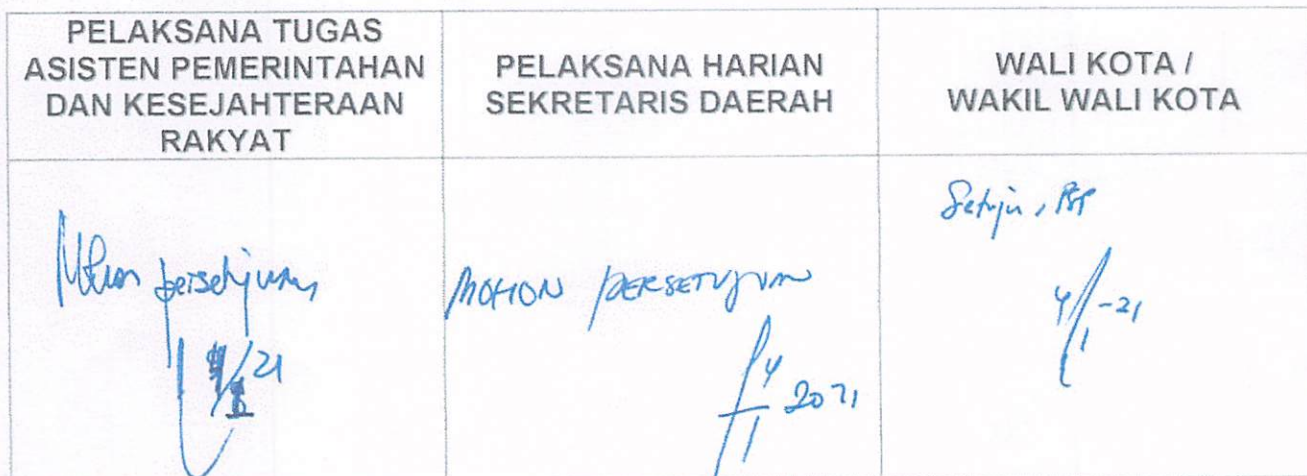 PELAKSANA TUGAS
ASISTEN PEMERINTAHAN
DAN KESEJAHTERAAN
RAKYAT
PELAKSANA HARIAN
SEKRETARIS DAERAH
WALI KOTA /
WAKIL WALI KOTA
Mohon persetujuan
/21
MOHON PERSETUJUAN
4/1 2021
Setuju,
4/1-21